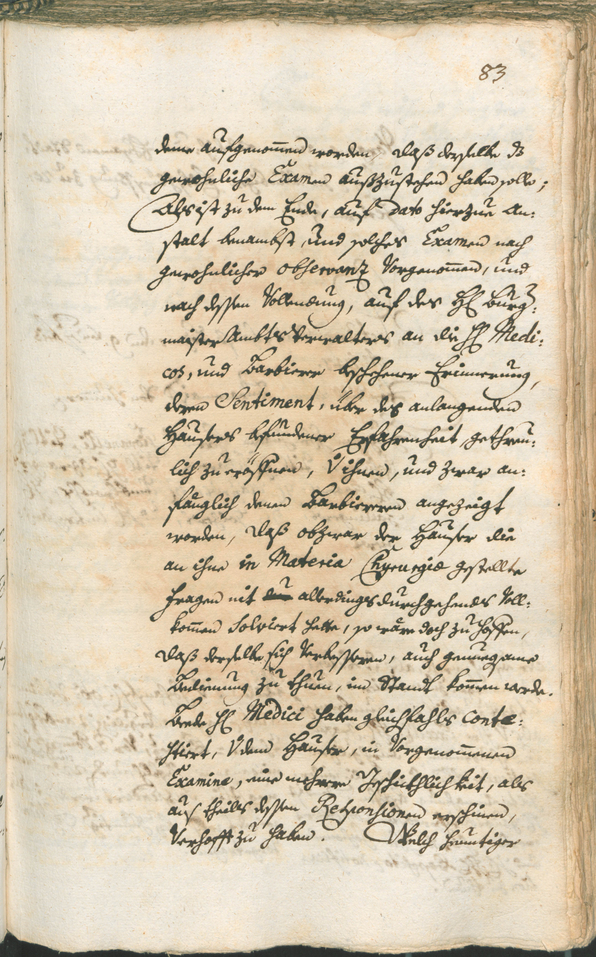 83
deme aufgenommen worden, daß derselbe dz
gewohnliche Examen außzustehen haben solle;
Alß ist zu dem Ende, auf dato hierzue An:
stalt benambst, und solches Examen nach
gewohnlicher observantz Vorgenommen, und
nach dessen Vollendung, auf des H: Burg:
maister Ambts Verwalters an die H: Medi:
cos, und Barbierer beschehene Erinnerung,
deren Sentiment, über des anlangenden
Hausers befundene Erfahrenheit, getreu:
lich zu eröffnen, V ihnen, und zwar an:
fänglich denen Barbiereren angezeigt
worden, daß obzwar der Hauser die
an ihne in Materia Chyrurgiæ gestellte
Fragen nit allerdings durchgehends Voll:
kommen Solviert hette, so wäre doch zu hoffen,
daß derselbe sich Verbesseren, auch genuegsame
Bedienung zu thuen, im Standt kommen werde.
Beede H: Medici haben gleichfahls conte:
stiert, V dem Hauser, in Vorgenommenen
Examine, eine mehrere Geschikhlichkeit, als
auß theils dessen Responsionen erschinen,
Verhofft zu haben. Welch heuntiger